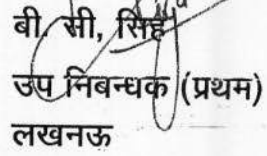 बी. सी, सिंह
उप निबन्धक (प्रथम)
लखनऊ